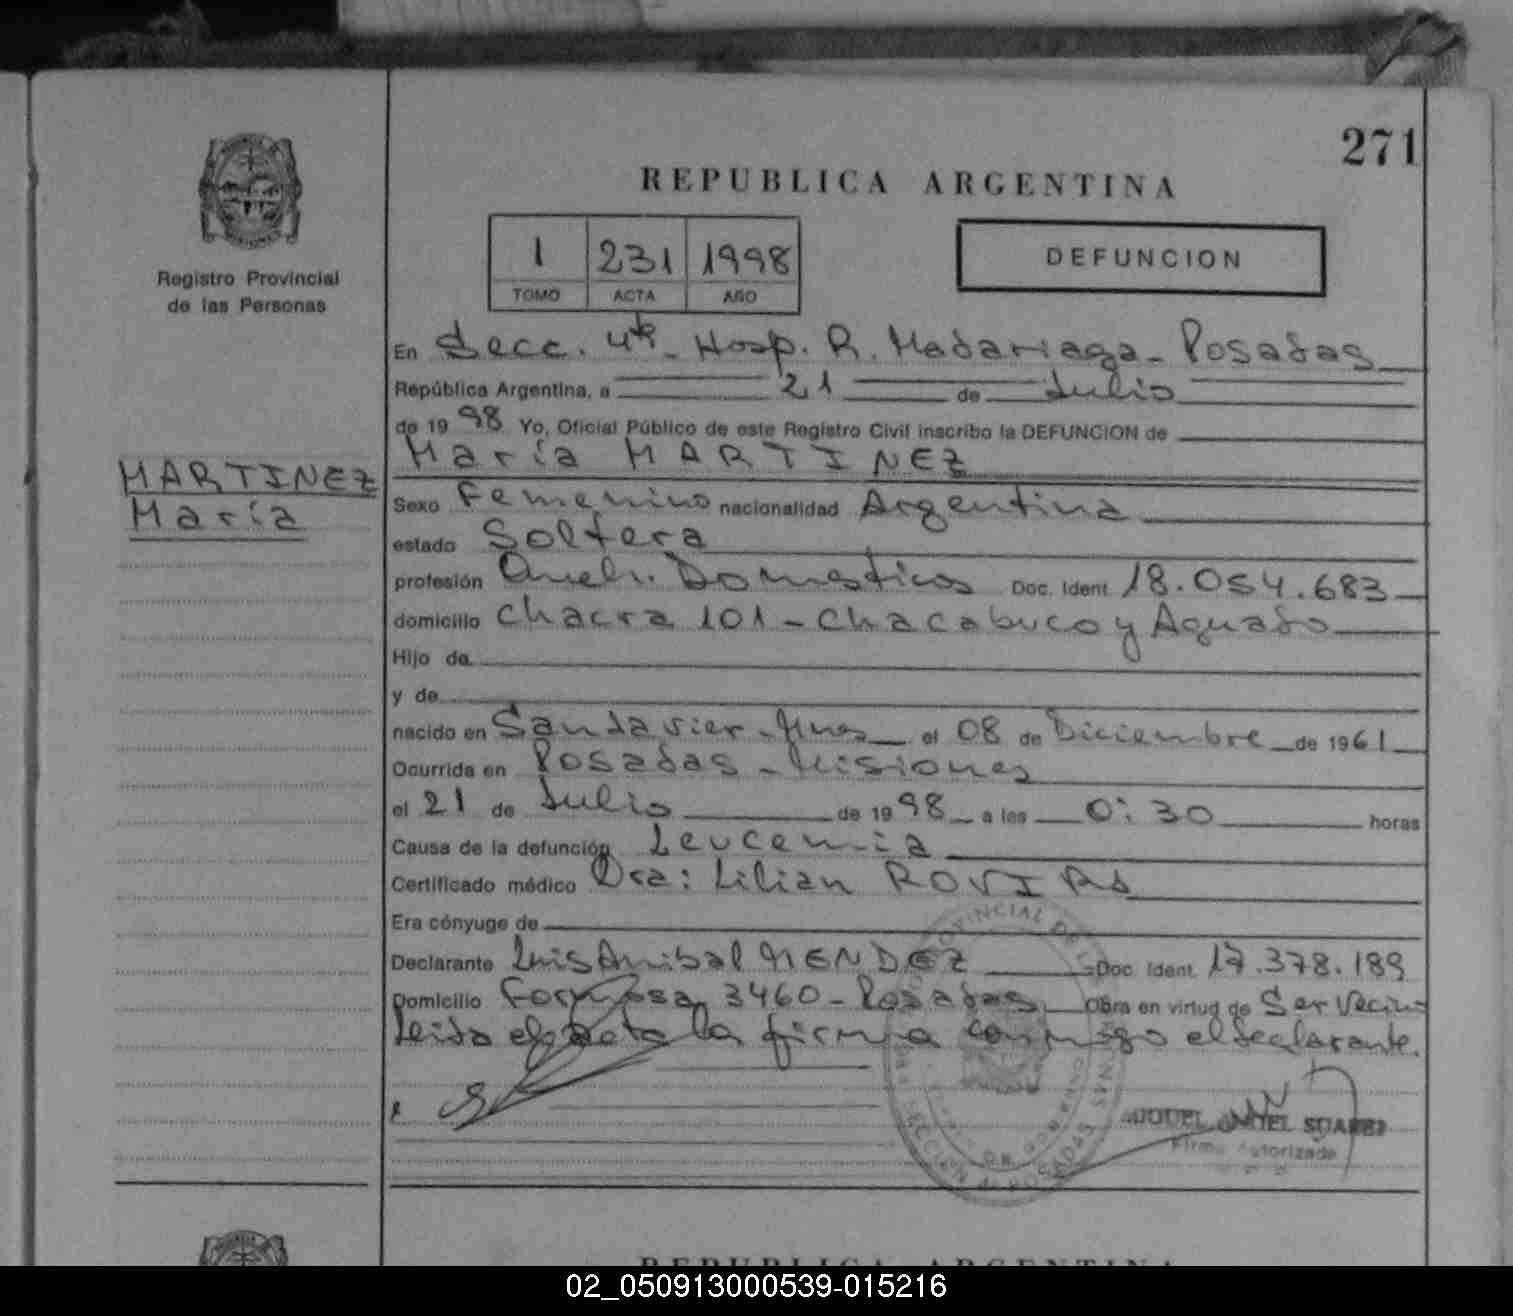 271
REPUBLICA ARGENTINA
Registro Provincial
de las Personas
1 231 1998
TOMO ACTA AÑO
DEFUNCION
En Secc. 4ta - Hosp. R. Madariaga - Posadas
República Argentina, a 21 de Julio
de 1998 Yo, Oficial Público de este Registro Civil inscribo la DEFUNCION de
María MARTINEZ
MARTINEZ
María
Sexo Femenino nacionalidad Argentina
estado Soltera
profesión Domesticos Doc. Ident. 18.054.683
domicilio Chacra 101 - Chacabuco y Aguado
Hijo de
y de
nacido en San Javier - Mnes el 08 de Diciembre de 1961
Ocurrida en Posadas - Misiones
el 21 de Julio de 1998 a las 0:30 horas
Causa de la defunción Leucemia
Certificado médico Dra: Lilian ROVIRA
Era cónyuge de
Declarante Luis Anibal MENDEZ Doc. Ident. 17.378.189
Domicilio Formosa 3460 - Posadas Obra en virtud de Ser Vecino
Leida el acta la firma conmigo el declarante.
MIGUEL ANGEL SUAREZ
Firma Autorizada
REPUBLICA ARGENTINA
02_050913000539-015216